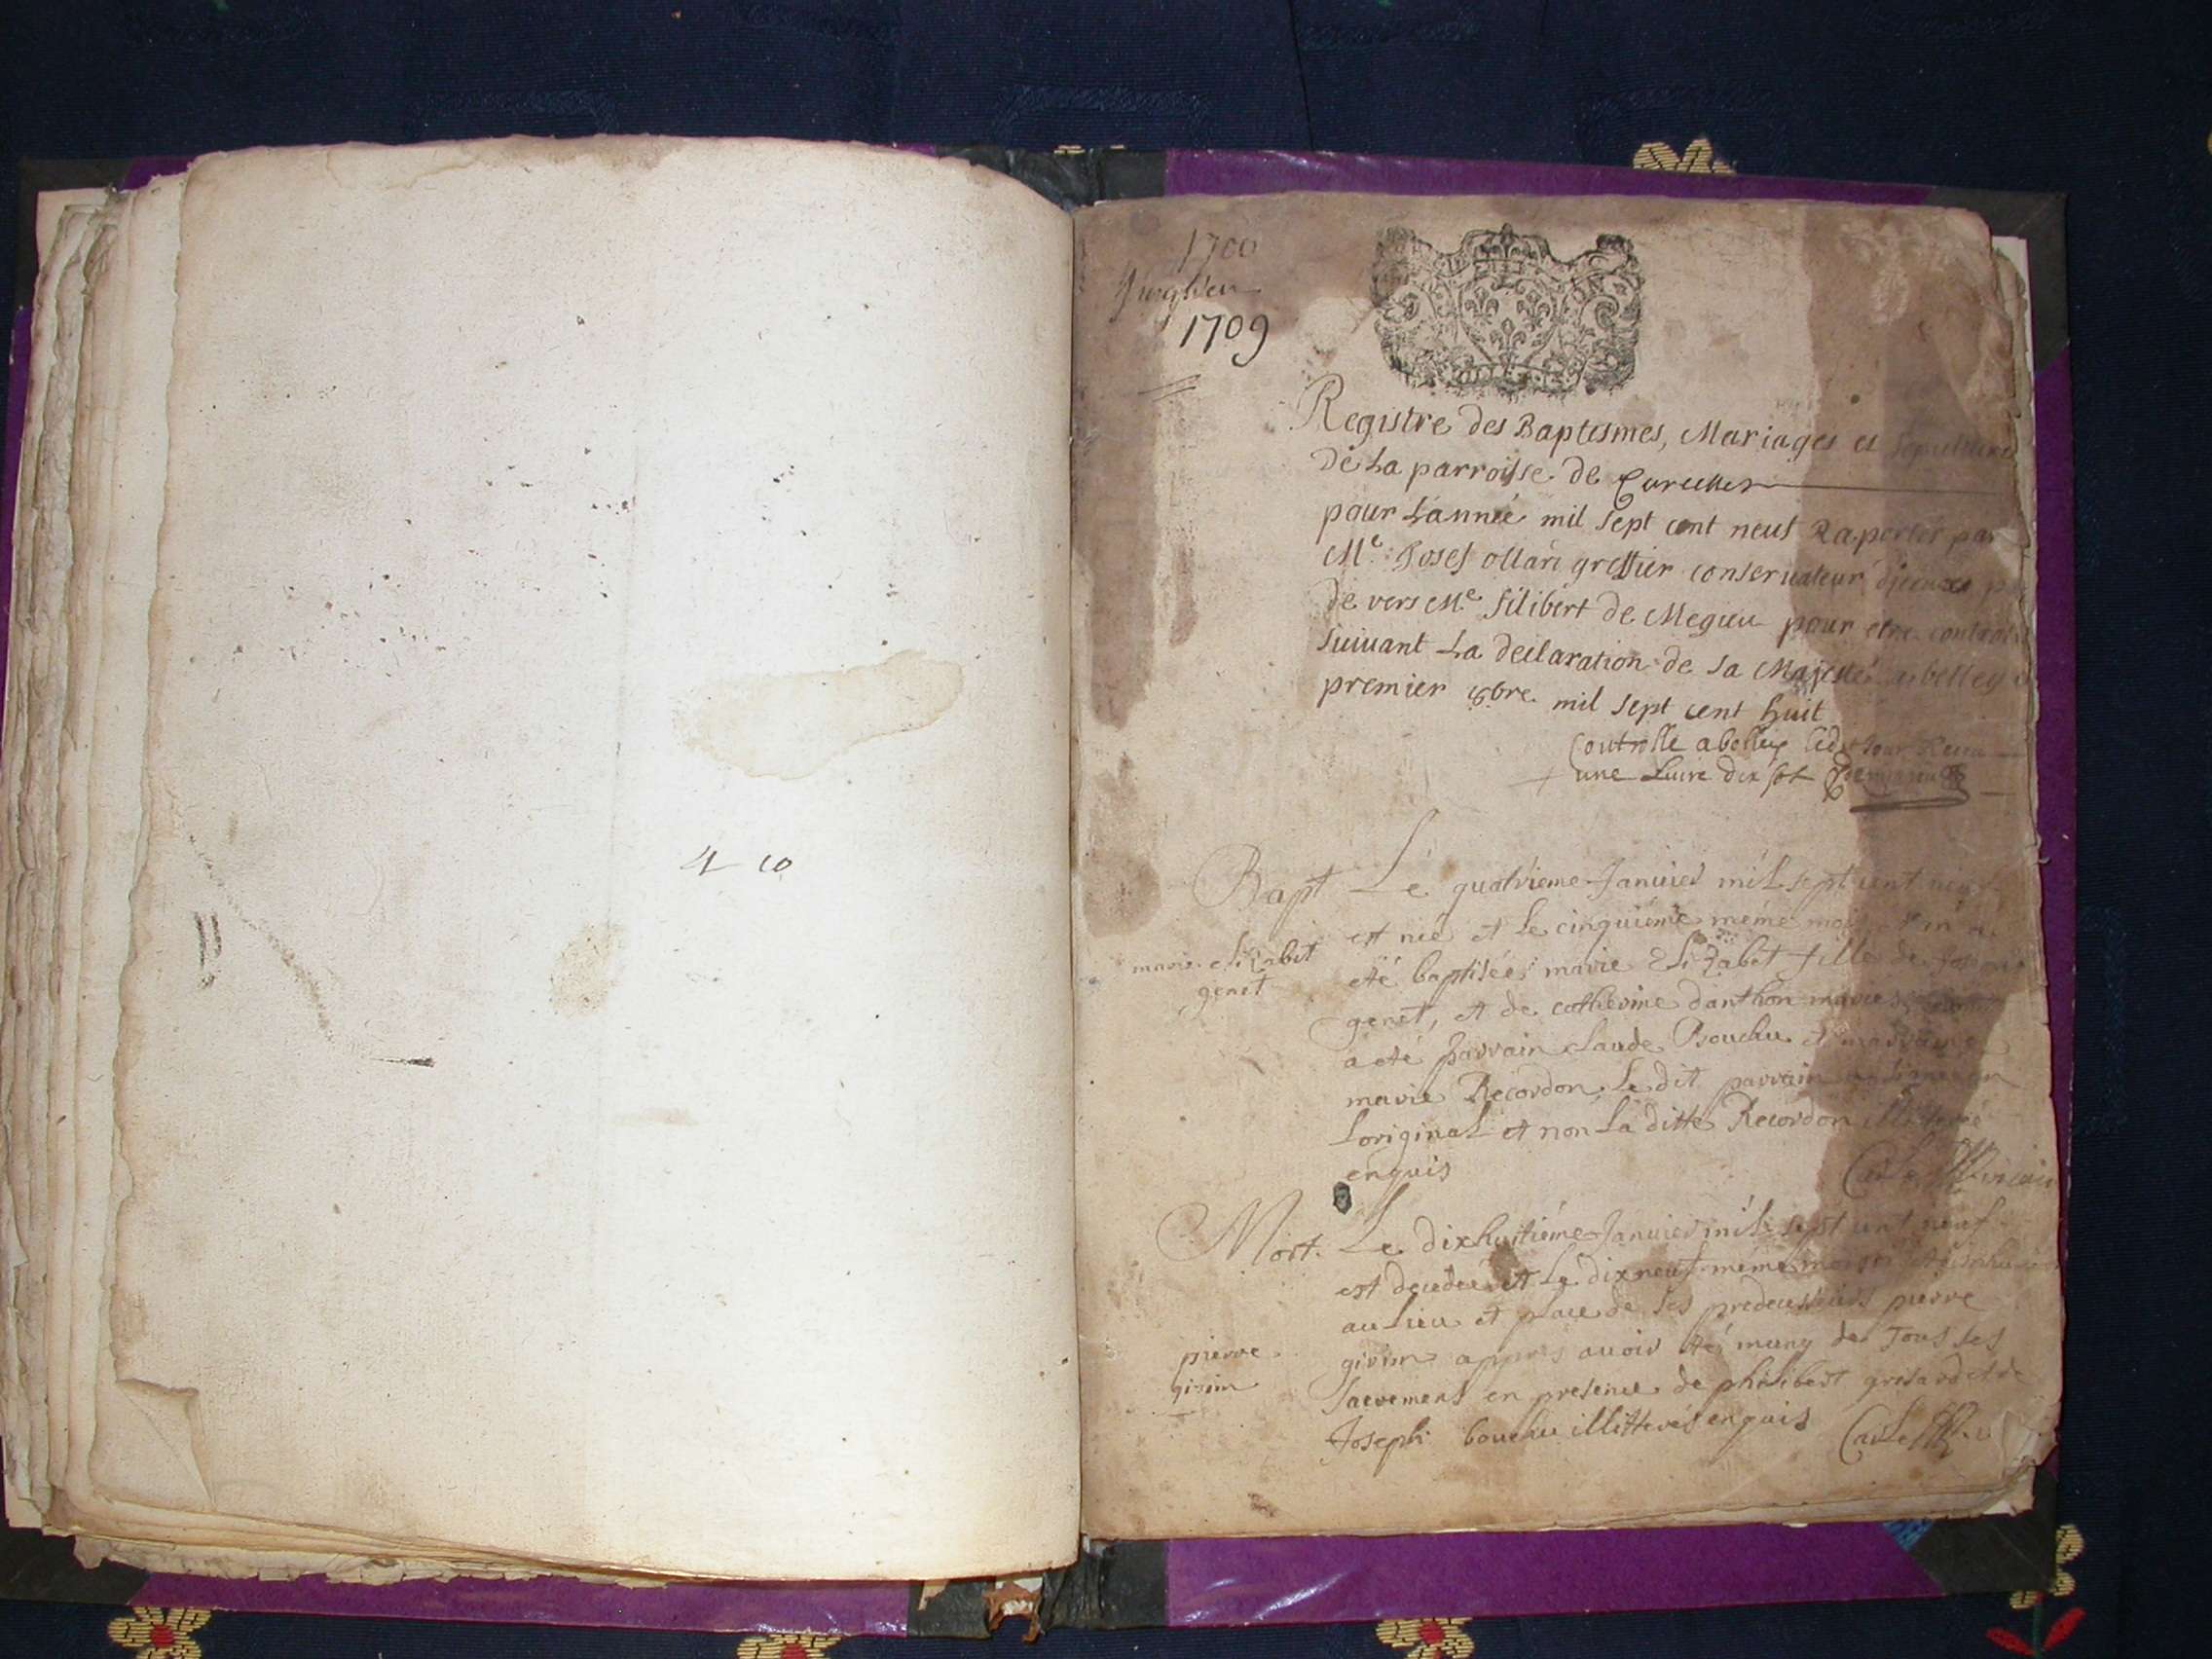 4 10
1700
1709
Registre des Baptismes, Mariages et
de La parroisse de
pour L'année mil sept cent neuf Raporter par
Me. Josef ollari greffier conseruateur
de vers Me filibert de Megieu pour etre
suiuant La declaration de sa Majesté a belley
premier 8bre mil sept cent huit
Controllé a belley led jour Receu
une Liure dix sol
Bapt Le quatrieme Januier mil sept cent neuf
est neé et Le cinquiéme méme mois
marie elizabet
genet
eté baptisée marie Elizabet fille de
genet, et de catherine danthon mariés
a eté parrain claude Bouchu et marraine
marie Recordon, Le dit parrain
Loriginal et non La ditte Recordon
enquis
Mort. Le dixhuitiéme Januier mil sept cent neuf
est decedé et Le dixneuf méme mois
au Lieu et place de ses predecesseurs pierre
pierre
girin
girin appres auoir eté muny de Tous les
sacremens en presence de philibert grisard et de
Joseph bouchu illitterés enquis